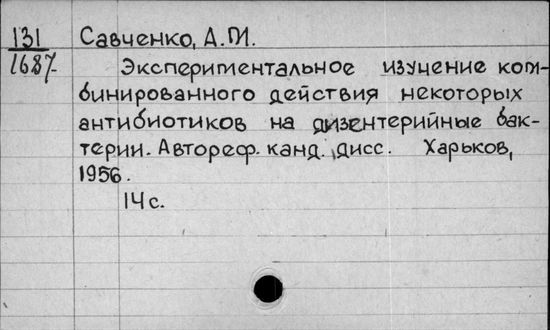 131 Савченко, А.М.
1687- Экспериментальное изучение ком-
бинированного действия некоторых
антибиотиков на дизентерийные бак-
терии. Автореф. канд. дисс. Харьков,
1956.
14 с.